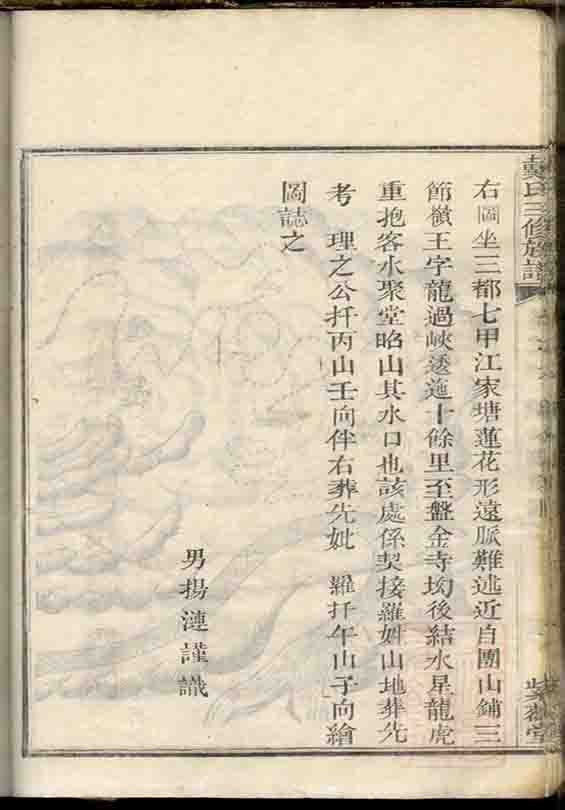 右圖坐三都七甲江家塘蓮花形遠脈難述近自團山鋪三
節嶺王字龍過峽透迤十餘里至盤金寺坳後結水星龍虎
重抱客水聚堂昭山其水口也該處係契接羅姓山地葬先
考 理之公扦丙山壬向伴右葬先妣 羅扦午山子向繪
圖誌之
男揚漣謹識
戴氏三修族譜
紫薇堂